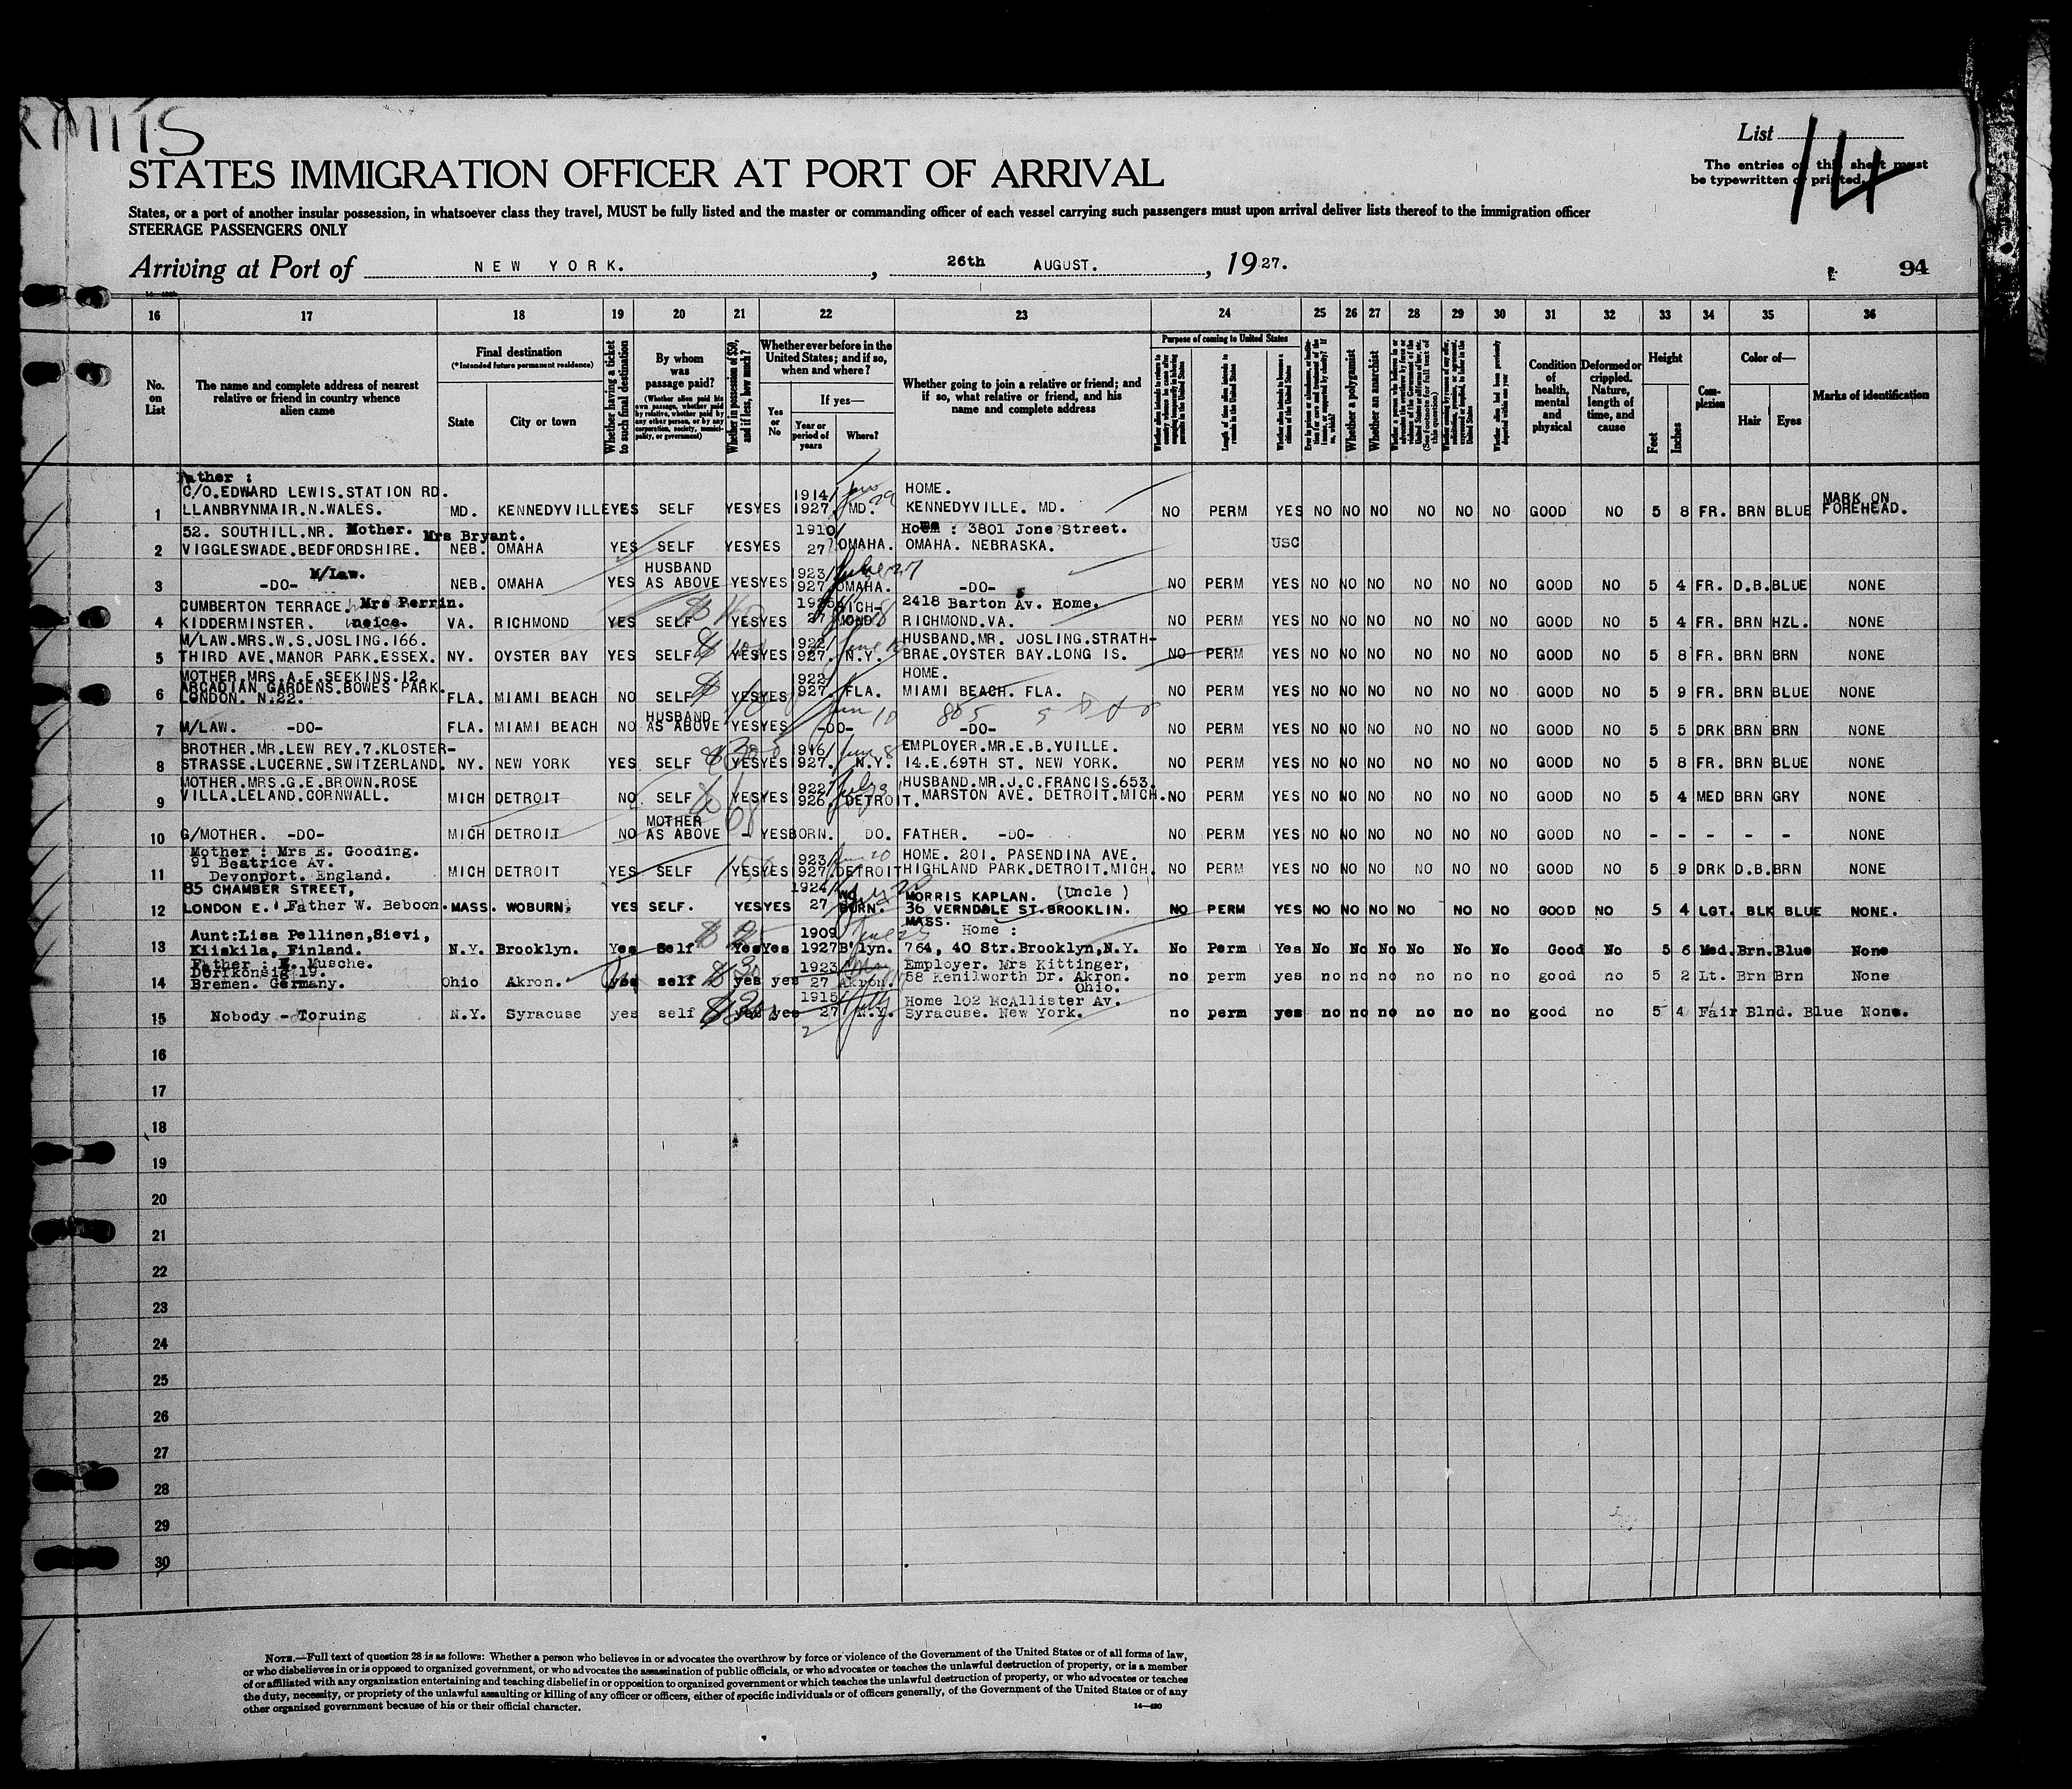 RMITS
List 14
The entries on this sheet must
be typewritten or printed.
STATES IMMIGRATION OFFICER AT PORT OF ARRIVAL
States, or a port of another insular possession, in whatsoever class they travel, MUST be fully listed and the master or commanding officer of each vessel carrying such passengers must upon arrival deliver lists thereof to the immigration officer
STEERAGE PASSENGERS ONLY
Arriving at Port of NEW YORK. , 26th AUGUST. , 19 27.
94
16 17 18 19 20 21 22 23 24 25 26 27 28 29 30 31 32 33 34 35 36
No. on List
The name and complete address of nearest relative or friend in country whence alien came
Final destination
(*Intended future permanent residence)
State
City or town
Whether having a ticket to such final destination
By whom was passage paid?
(Whether alien paid his own passage, whether paid by relative, whether paid by any other person, or by any corporation, society, municipality, or government)
Whether in possession of $50, and if less, how much?
Whether ever before in the United States; and if so, when and where?
Yes or No
If yes—
Year or period of years
Where?
Whether going to join a relative or friend; and if so, what relative or friend, and his name and complete address
Purpose of coming to United States
Length of time alien intends to remain in the United States
Whether alien intends to become a citizen of the United States
Whether a polygamist
Whether an anarchist
Condition of health, mental and physical
Deformed or crippled. Nature, length of time, and cause
Height
Feet
Inches
Complexion
Color of—
Hair
Eyes
Marks of identification
Father :
C/O.EDWARD LEWIS.STATION RD. 1914 HOME. MARK ON
1 LLANBRYNMAIR.N.WALES. MD. KENNEDYVILLE YES SELF YES YES 1927 MD. KENNEDYVILLE. MD. NO PERM YES NO NO NO NO NO NO GOOD NO 5 8 FR. BRN BLUE FOREHEAD.
52. SOUTHILL.NR. Mother. Mrs Bryant. 1910 Home : 3801 Jone Street.
2 VIGGLESWADE.BEDFORDSHIRE. NEB. OMAHA YES SELF YES YES 27 OMAHA. OMAHA. NEBRASKA. USC
M/Law. HUSBAND 1923
3 -DO- NEB. OMAHA YES AS ABOVE YES YES 1927 OMAHA. -DO- NO PERM YES NO NO NO NO NO NO GOOD NO 5 4 FR. D.B. BLUE NONE
CUMBERTON TERRACE. Mrs Perrin. RICH- 2418 Barton Av. Home.
4 KIDDERMINSTER. neice. VA. RICHMOND YES SELF YES YES 27 MOND. RICHMOND.VA. NO PERM YES NO NO NO NO NO NO GOOD NO 5 4 FR. BRN HZL. NONE
M/LAW.MRS.W.S.JOSLING.166. 1922 HUSBAND.MR. JOSLING.STRATH-
5 THIRD AVE.MANOR PARK.ESSEX. NY. OYSTER BAY YES SELF YES YES 1927. N.Y. BRAE.OYSTER BAY.LONG IS. NO PERM YES NO NO NO NO NO NO GOOD NO 5 8 FR. BRN BRN NONE
MOTHER.MRS.A.E.SEEKINS.12.
ARCADIAN GARDENS.BOWES PARK. 1922 HOME.
6 LONDON. N.22. FLA. MIAMI BEACH NO SELF YES YES 1927. FLA. MIAMI BEACH. FLA. NO PERM YES NO NO NO NO NO NO GOOD NO 5 9 FR. BRN BLUE NONE
HUSBAND
7 M/LAW. -DO- FLA. MIAMI BEACH NO AS ABOVE YES YES -DO- -DO- NO PERM YES NO NO NO NO NO NO GOOD NO 5 5 DRK BRN BRN NONE
BROTHER.MR.LEW REY.7.KLOSTER- 1916 EMPLOYER.MR.E.B.YUILLE.
8 STRASSE.LUCERNE.SWITZERLAND. NY. NEW YORK YES SELF YES YES 1927. N.Y. 14.E.69TH ST. NEW YORK. NO PERM YES NO NO NO NO NO NO GOOD NO 5 8 FR. BRN BLUE NONE
MOTHER.MRS.G.E.BROWN.ROSE 922 HUSBAND.MR.J.C.FRANCIS.653.
9 VILLA.LELAND.CORNWALL. MICH DETROIT NO SELF YES YES 926. DETROIT. MARSTON AVE. DETROIT.MICH. NO PERM YES NO NO NO NO NO NO GOOD NO 5 4 MED BRN GRY NONE
MOTHER
10 G/MOTHER. -DO- MICH DETROIT NO AS ABOVE - YES BORN. DO. FATHER. -DO- NO PERM YES NO NO NO NO NO NO GOOD NO - - - - - NONE
Mother : Mrs E. Gooding.
91 Beatrice Av. 923 HOME. 201. PASENDINA AVE.
11 Devonport. England. MICH DETROIT YES SELF YES YES 927 DETROIT HIGHLAND PARK.DETROIT.MICH. NO PERM YES NO NO NO NO NO NO GOOD NO 5 9 DRK D.B. BRN NONE
85 CHAMBER STREET, 1924 WO. MORRIS KAPLAN. (Uncle )
12 LONDON E. Father W. Beboon. MASS. WOBURN. YES SELF. YES YES 27 BURN. 36 VERNDALE ST.BROOKLIN. NO PERM YES NO NO NO NO NO NO GOOD NO 5 4 LGT. BLK BLUE NONE.
MASS.
Aunt:Lisa Pellinen,Sievi, 1909 Home :
13 Kiiskila, Finland. N.Y. Brooklyn. Yes Self Yes Yes 1927 B'lyn. 764, 40 Str.Brooklyn,N.Y. No Perm Yes No No No No No No Good No 5 6 Med. Brn. Blue None
Father : Musche.
Dorfkonsig 19. 1923 Employer. Mrs Kittinger,
14 Bremen. Germany. Ohio Akron. yes self yes yes 27 Akron. 68 Kenilworth Dr. Akron. no perm yes no no no no no no good no 5 2 Lt. Brn Brn None
Ohio.
1915 Home 102 McAllister Av.
15 Nobody - Toruing N.Y. Syracuse yes self yes yes 27 N.Y. Syracuse. New York. no perm yes no no no no no no good no 5 4 Fair Blnd. Blue None.
16
17
18
19
20
21
22
23
24
25
26
27
28
29
30
NOTE.—Full text of question 28 is as follows: Whether a person who believes in or advocates the overthrow by force or violence of the Government of the United States or of all forms of law,
or who disbelieves in or is opposed to organized government, or who advocates the assassination of public officials, or who advocates or teaches the unlawful destruction of property, or is a member
of or affiliated with any organization entertaining and teaching disbelief in or opposition to organized government or which teaches the unlawful destruction of property, or who advocates or teaches
the duty, necessity, or propriety of the unlawful assaulting or killing of any officer or officers, either of specific individuals or of officers generally, of the Government of the United States or of any
other organized government because of his or their official character.
14—480